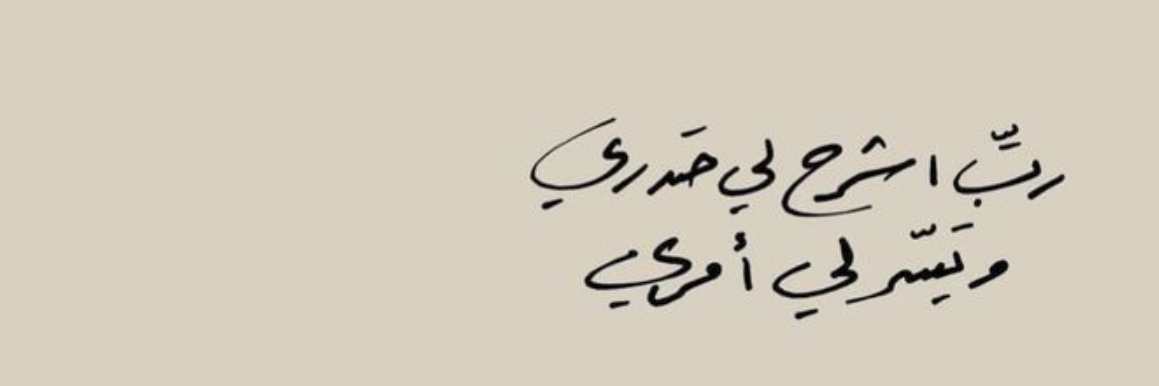 ربِّ اشرح لي صَدري
ويَسِّر لي أمري